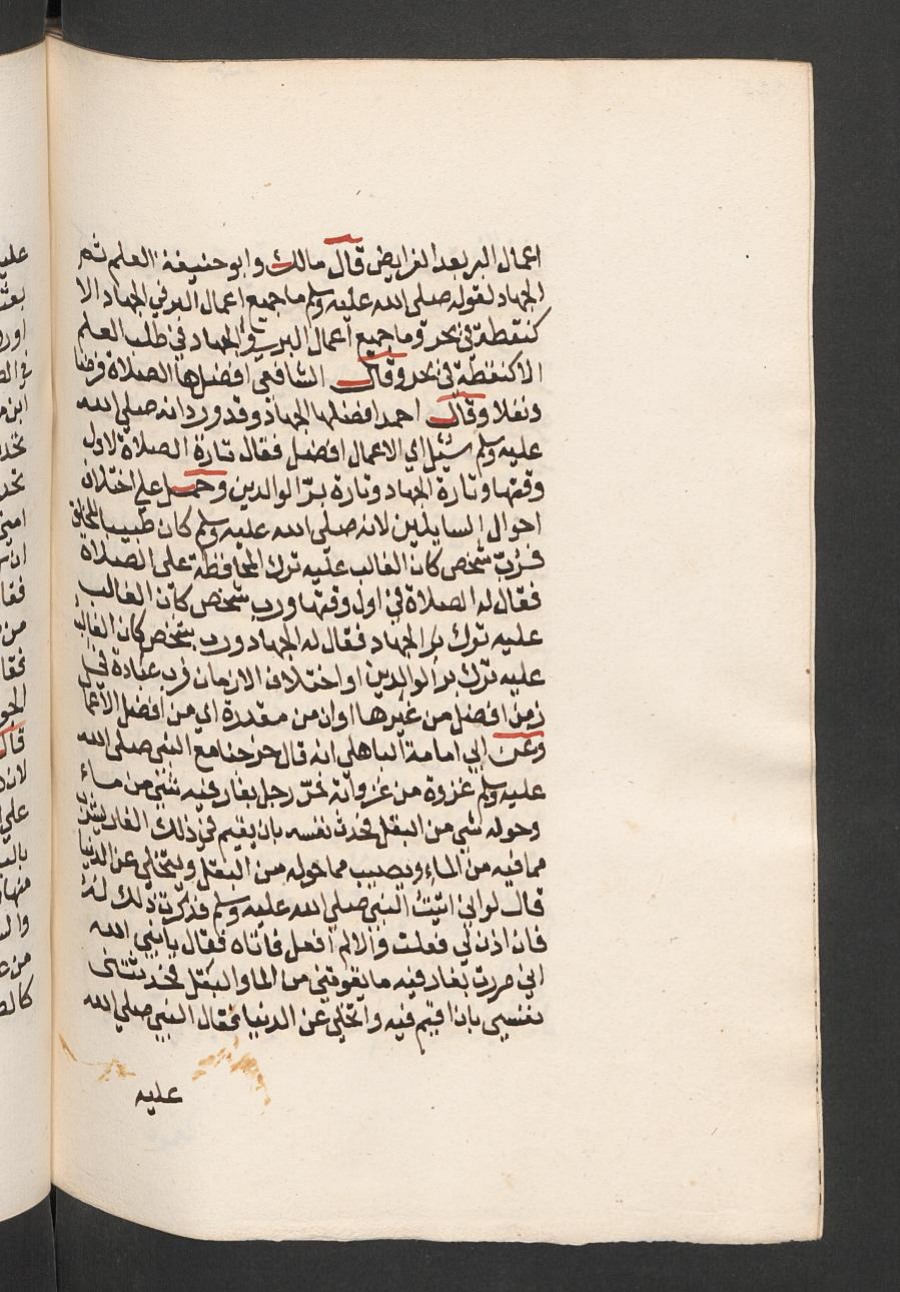 اعمال البر بعد الفرايض قال مالك وابو حنيفة العلم ثم
الجهاد لقوله صلى الله عليه وسلم ما جميع اعمال البر في الجهاد الا
كنقطة في بحر وما جميع اعمال البر والجهاد في طلب العلم
الا كنقطة في بحر وقال الشافعي افضلها الصلاة فرضا
ونفلا وقال احمد افضلها الجهاد وقد ورد انه صلى الله
عليه وسلم سئل اي الاعمال افضل فقال تارة الصلاة لاول
وقتها وتارة الجهاد وتارة برّ الوالدين وحمل على اختلاف
احوال السايلين لانه صلى الله عليه وسلم كان طبيب الخلق
فربّ شخص كان الغالب عليه ترك المحافظة على الصلاة
فقال له الصلاة في اول وقتها ورب شخص كان الغالب
عليه ترك بر الجهاد فقال له الجهاد ورب شخص كان الغالب
عليه ترك بر الوالدين او اختلاف الازمان فرب عبادة في
زمن افضل من غيرها او ان من مقدرة اي من افضل الاعمال
وعن ابي امامة الباهلي انه قال خرجنا مع النبي صلى الله
عليه وسلم غزوة من غزواته فمرّ رجل بغار فيه شئ من ماء
وحوله شي من البقل فحدث نفسه بان يقيم في ذلك الغار يشرب
مما فيه من الماء ويصيب مما حوله من البقل ويتخلى عن الدنيا
قال لو اني اتيت النبي صلى الله عليه وسلم فذكرت ذلك له
فان اذن لي فعلت والا لم افعل فاتاه فقال يا نبي الله
اني مررت بغار فيه ما يقوتني من الما والبقل فحدثتنى
نفسي بان اقيم فيه واتخلى عن الدنيا فقال النبي صلى الله
عليه